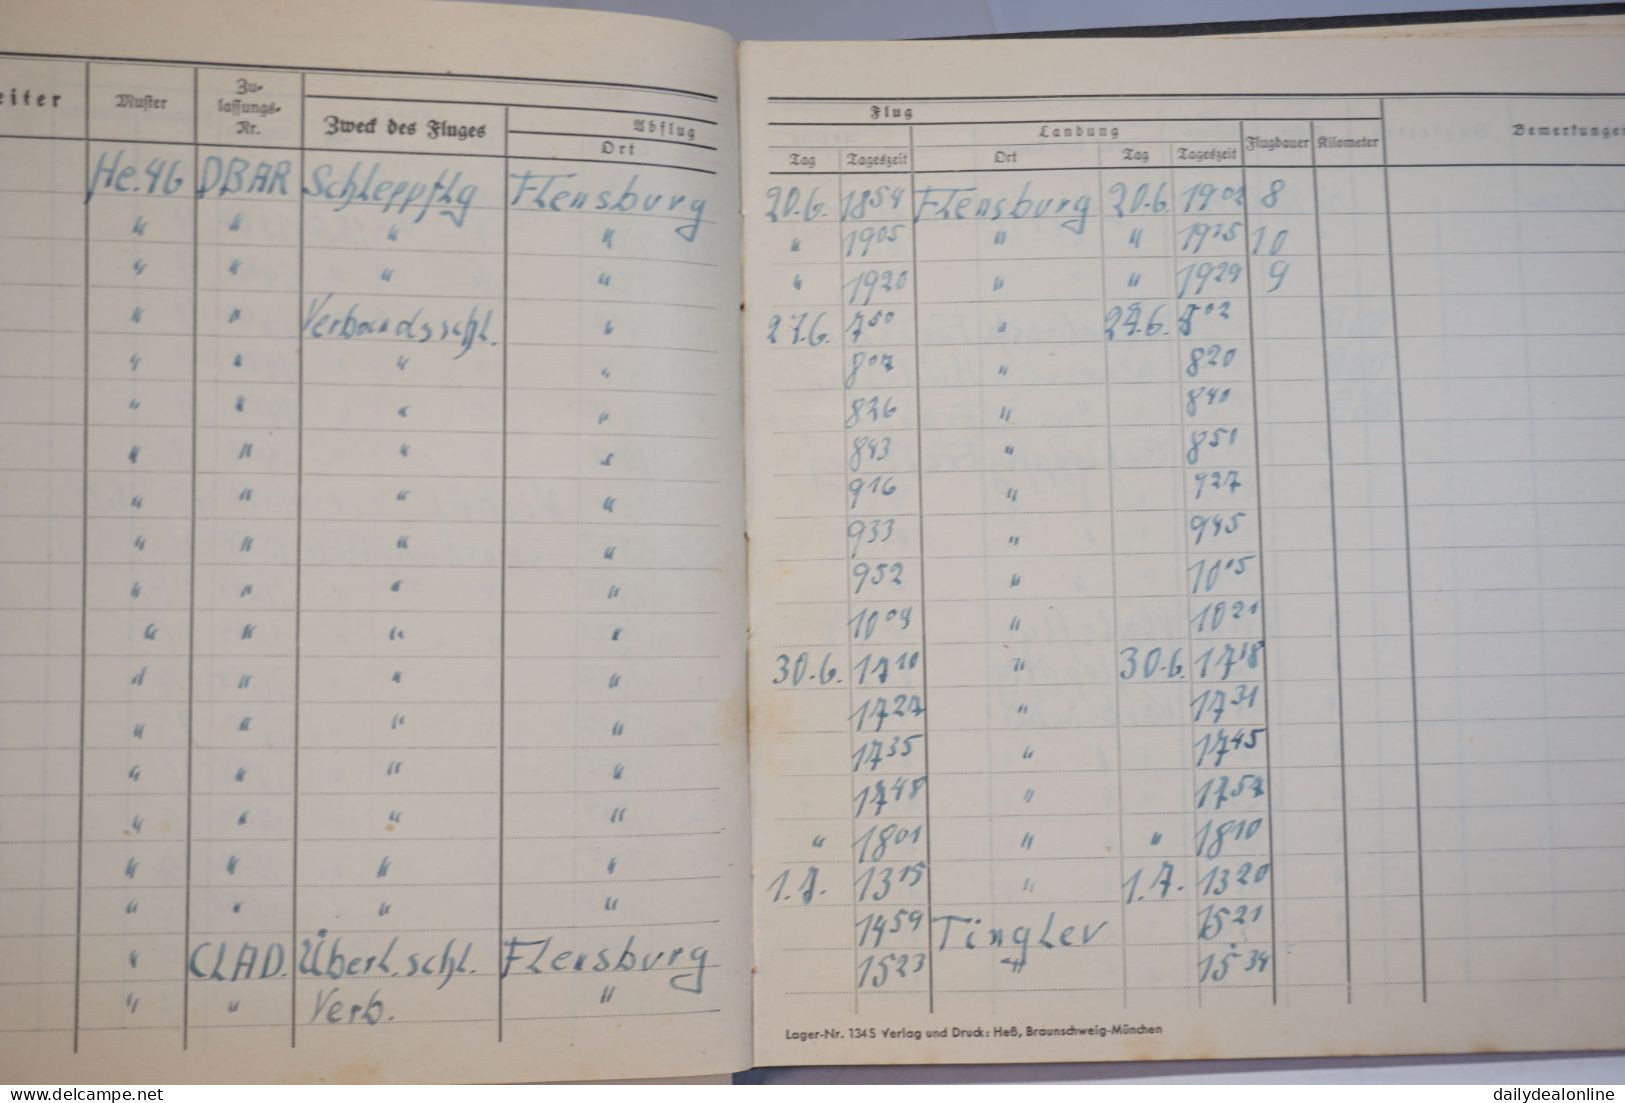 eiter Muster Zu-lassungs-Nr. Zweck des Fluges Abflug Ort
Flug
Tag Tageszeit Landung Ort Tag Tageszeit Flugdauer Kilometer Bemerkungen
He.46 DBAR Schleppflg Flensburg 20.6. 18 54 Flensburg 20.6. 19 02 8
" " " " " 19 05 " " 19 15 10
" " " " " 19 20 " " 19 29 9
" " Verbandsschl. " 27.6. 7 50 " 27.6. 8 02
" " " " 8 07 " 8 20
" " " " 8 26 " 8 40
" " " " 8 43 " 8 50
" " " " 9 16 " 9 27
" " " " 9 33 " 9 45
" " " " 9 52 " 10 05
" " " " 10 09 " 10 21
" " " " 30.6. 17 10 " 30.6. 17 18
" " " " 17 27 " 17 31
" " " " 17 35 " 17 45
" " " " 17 48 " 17 57
" " " " " 18 01 " " 18 10
" " " " 1.7. 13 15 " 1.7. 13 20
" CLAD. Überl.schl. Flensburg 14 59 Tinglev 15 21
" " Verb. " 15 23 " 15 34
Lager-Nr. 134S Verlag und Druck: Heß, Braunschweig-München
www.delcampe.net
dailydealonline